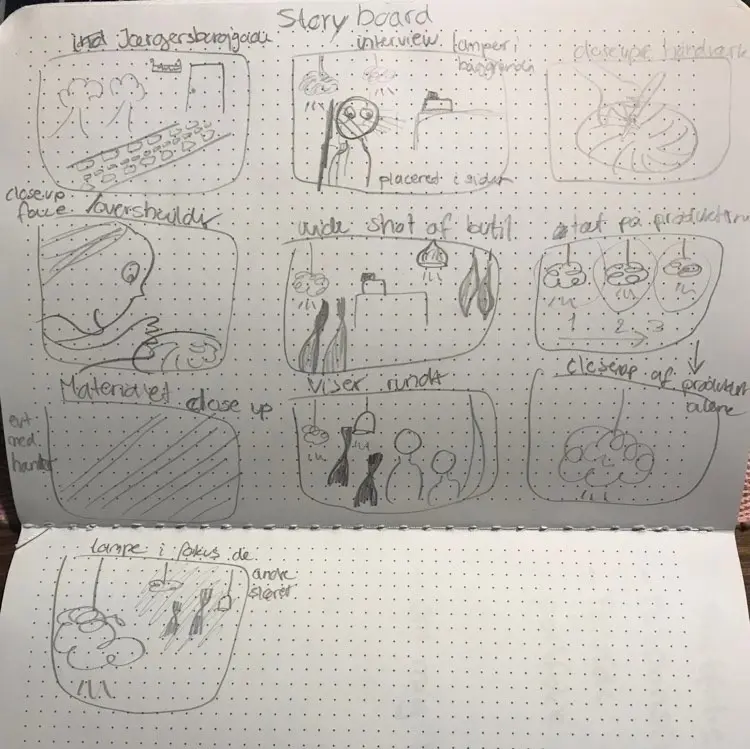 Story board
ind Jægersborggade
interview lamper i
baggrunden
closeups håndværk
placered i siden
closeup
face /overshoulder
wide shot af butik
start på produktion
1 2 3
Materialet close up
evt
med
hånd
viser rundt
closeup af produktet
alene
lampe i fokus de
andre
sløret